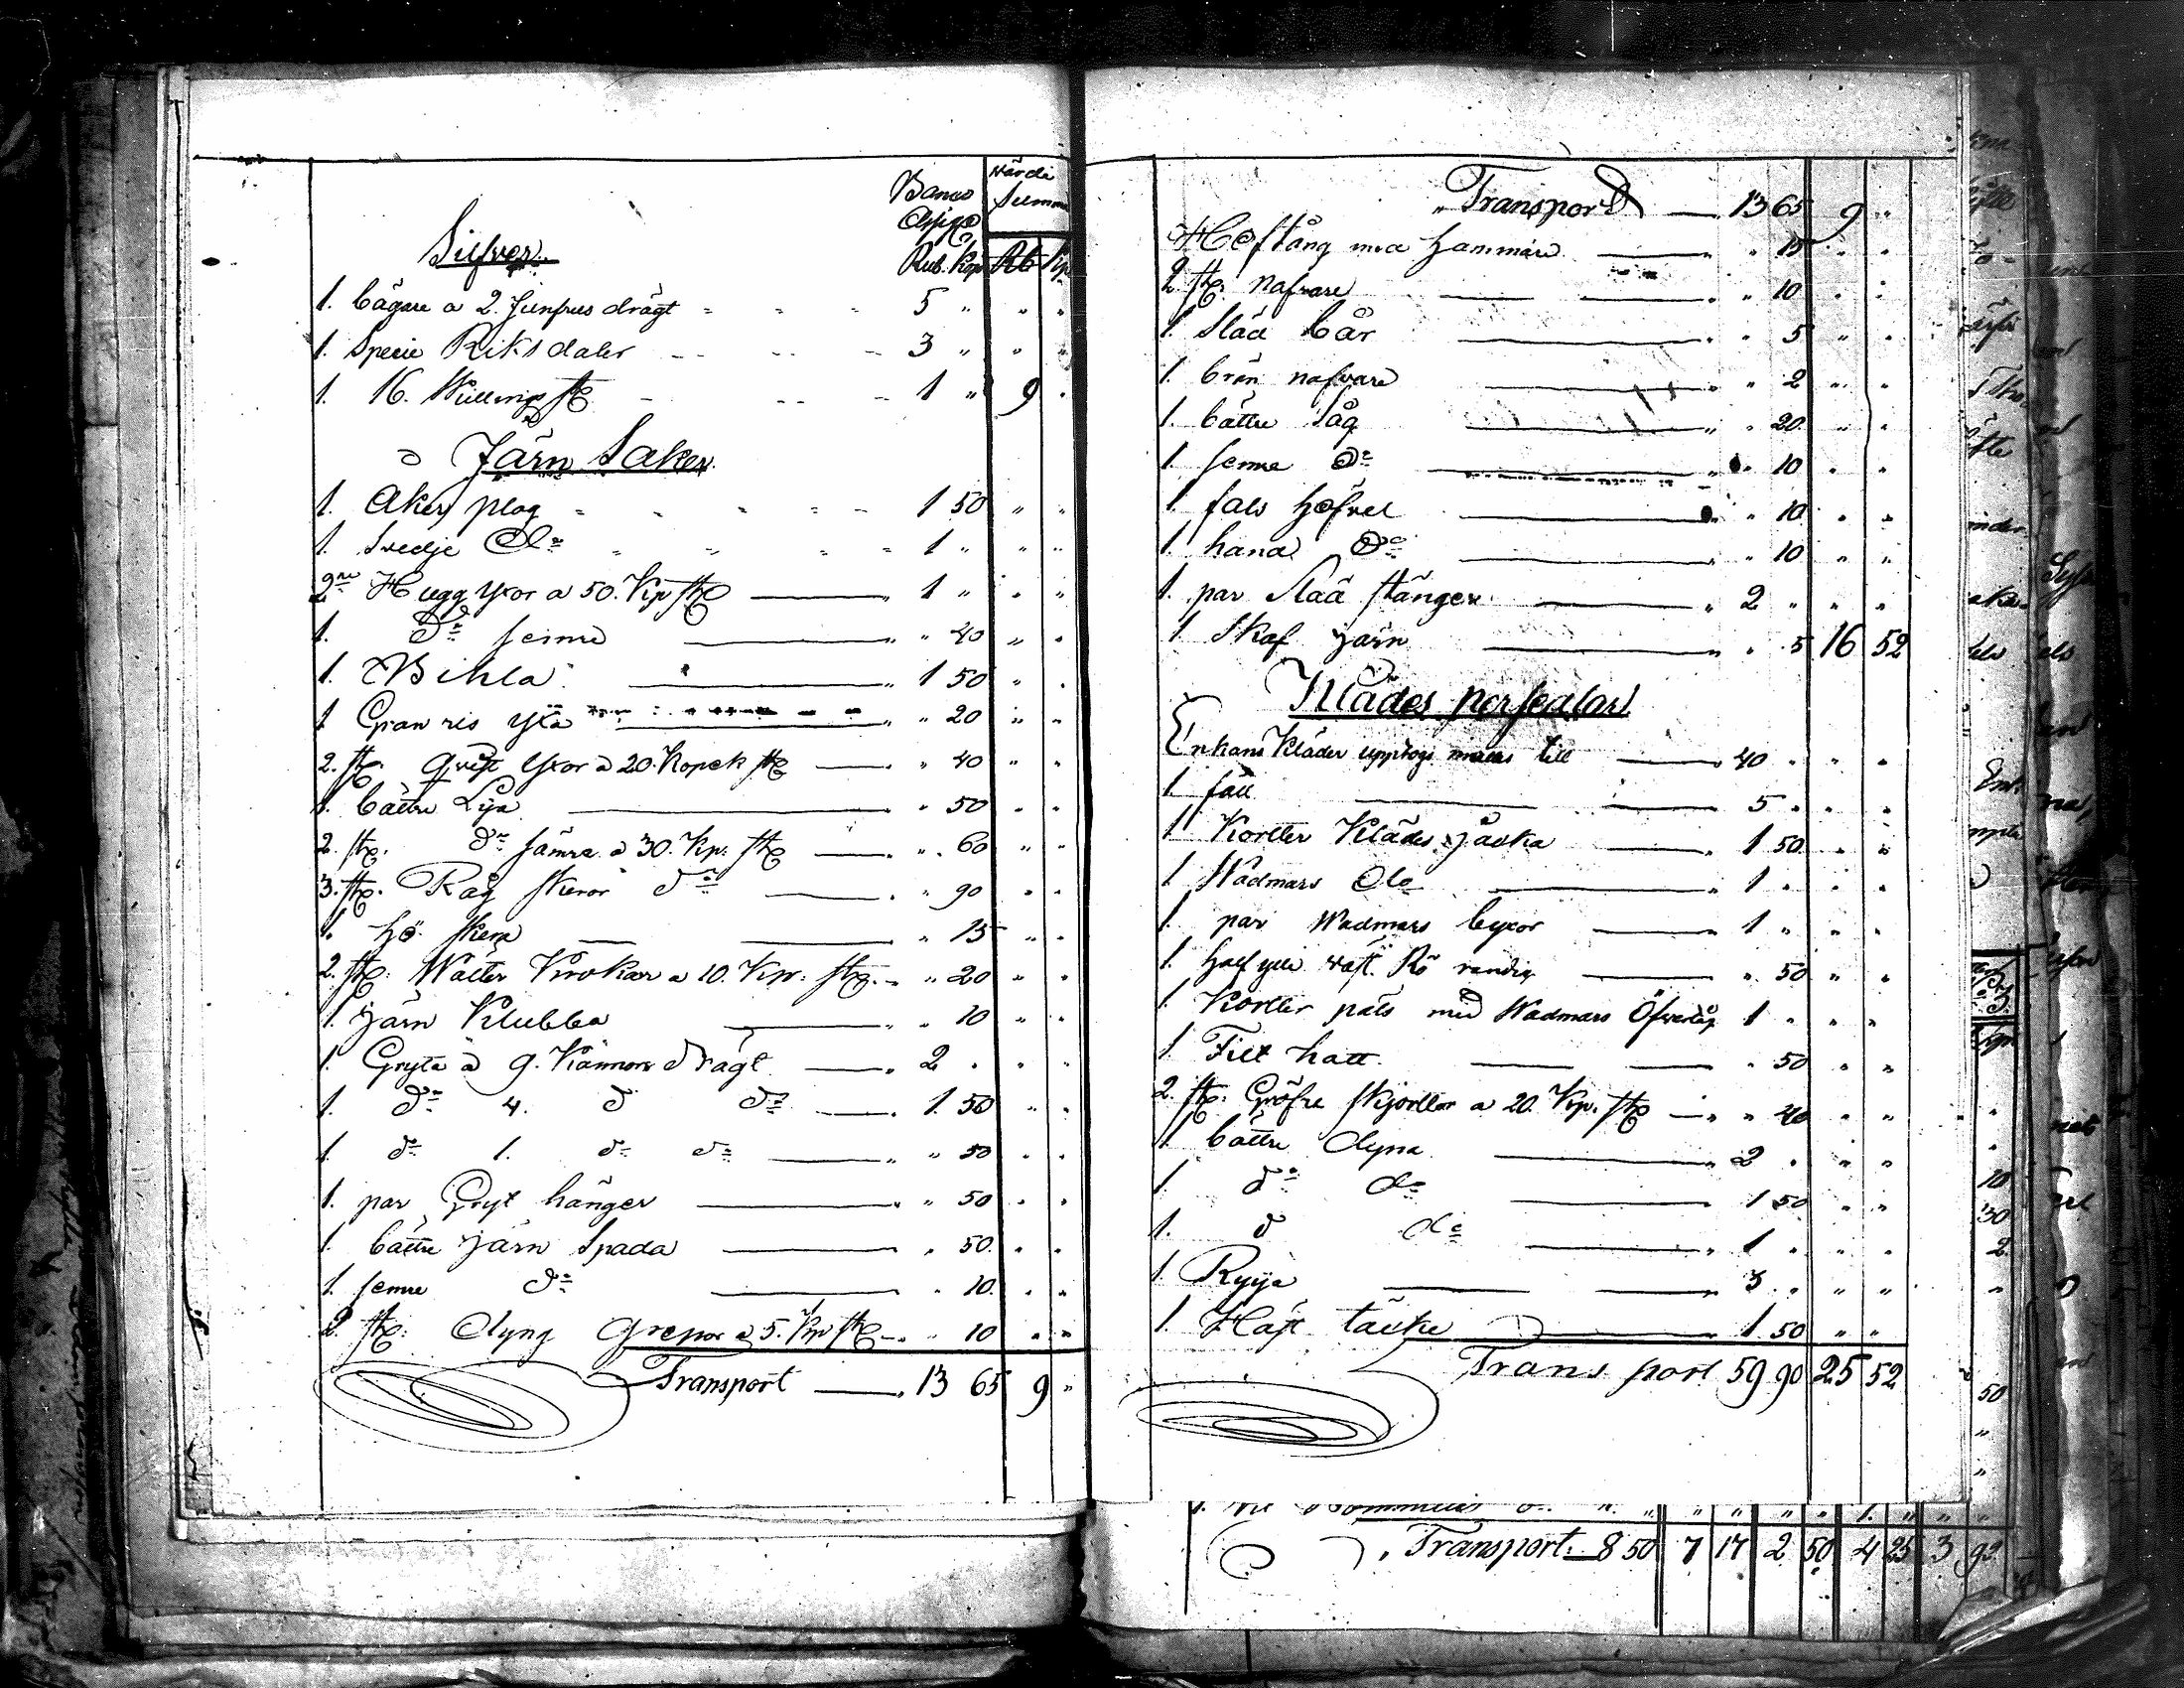 Värde
Banco Summa
Assigo
Silfver. Rub. Kop. Rb Kp.
1. bägare a 2. Junfrus drägt - - - 5 " " "
1. Specie Riks daler - - - 3 " " "
1. 16. Skillings st - - - 1 " 9 "
Järn Saker.
1. Aker plog - - - 1 50 " "
1. Svedje do - - - 1 " " "
2ne Hugg yxor a 50. Kp st 1 " " "
1. do semre " 40 " "
1. Bihla 1 50 " "
1 Gran ris yxa " 20 " "
2. st. yxor a 20. Kopek st " 40 " "
1. bättre Lija " 50 " "
2. st. do sämre a 30. Kp. st " 60 " "
3. st. Råg skäror do " 90 " "
1. hö skera " 15 " "
2. st. Krokar a 10. Kp. st. " 20 " "
1. järn Klubba " 10 " "
1. Gryta a 9. Kannors drägt 2 " " "
1. do 4. d do 1. 50 " "
1. do 1. do do " 50 " "
1. par Gryt hänger " 50 " "
1. bättre järn Spada " 50. " "
1. semre do " 10. " "
2. st. dyng grepor a 5. Kp st " 10 " "
Transport 13 65 9 "
Transport 13 65 9 "
1 Hoftång med hammare " 15 " "
2 st. nafvare " 10 " "
1. Släd bår " 5 " "
1. nafvare " 2 " "
1. bättre såg " 20 " "
1. semre do " 10 " "
1 fals höfvel " 10 " "
1. hand do " 10 " "
1. par Släd stänger 2 " " "
1 Skaf järn " 5 16 52
Klädes persedlar
Enkans Kläder upptogs till 40 " " "
1 fäll 5 " " "
1 Kortter Klädes jacka 1 50 " "
1 Wadmars do 1 " " "
1. par Wadmars byxor 1 " " "
1. half ylle väst. Rö randig " 50 " "
1. Kortter päls med Wadmars 1 " " "
1 Filt hatt " 50 " "
2. st. Gröfre skjortlar a 20. Kp. st " 40 " "
1 bättre dyna 2 " " "
1 do do 1 50 " "
1. d do 1 " " "
1. Ryija 3 " " "
1. Häst täcke 1 50 " "
Transport 59 90 25 52
Transport. 8 50 7 17 2 50 4 25 3 92